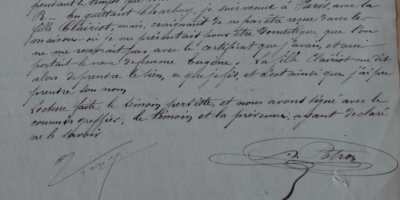 pendant le temps que
R... En quittant Cherbourg, je suis venue à Paris, avec la
fille Clairiot, mais, craignant de ne pas être reçue dans les
maisons où je me présentais pour être domestique, que l'on
ne me recevrait pas avec le certificat que j'avais, et qui
portait le nom de femme Eugène, la fille Clairiot me dit
alors de prendre le sien, ce que je fis, et c'est ainsi que j'ai pu
prendre son nom
Lecture faite, le témoin persiste, et nous avons signé avec le
commis greffier, le témoin et la prévenue, ayant déclaré
ne le savoir